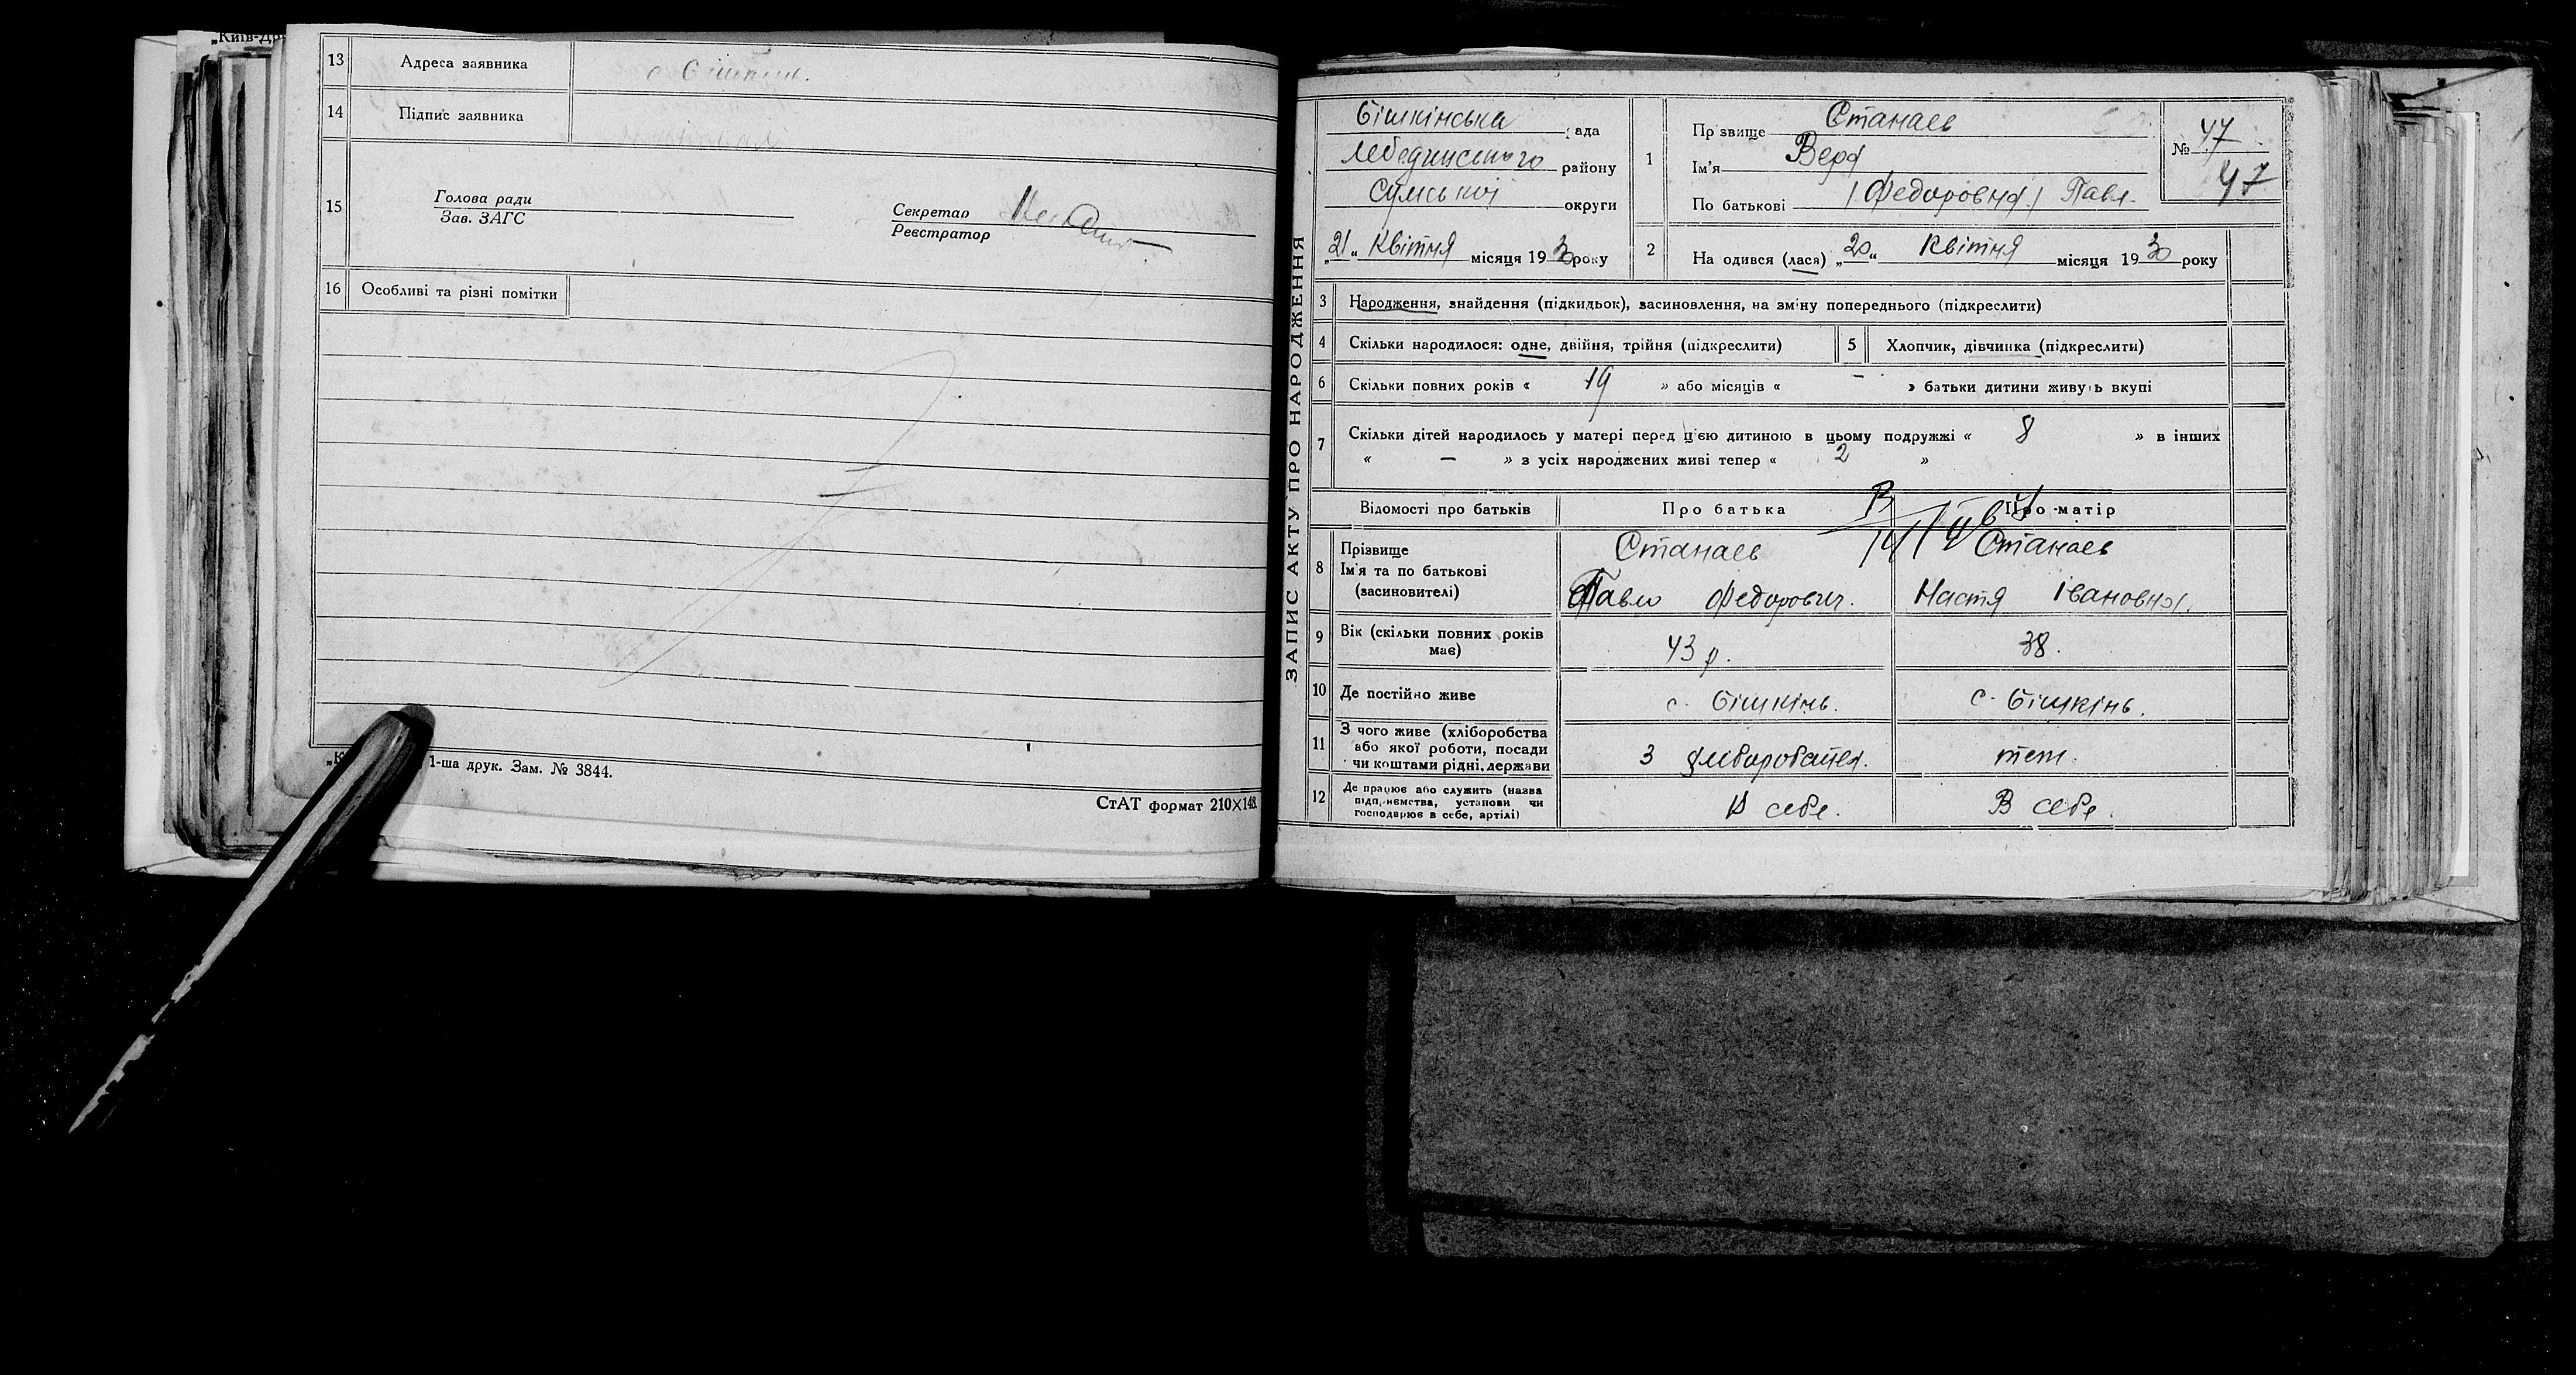 „Київ-Др
13 Адреса заявника с. Бішкінь.
14 Підпис заявника
15 Голова ради
Зав. ЗАГС
Секретар
Реєстратор
16 Особливі та різні помітки
1-ша друк. Зам. № 3844.
СтАТ формат 210×148.
ЗАПИС АКТУ ПРО НАРОДЖЕННЯ
Бішкінська рада
Лебединського району
Сумської округи
„21“ Квітня місяця 1930 року
1 Прізвище Станаев
Ім'я Вера
По батькові /Федоровна/ Павл.
№ 47
47
2 Народився (лася) „20“ Квітня місяця 1930 року
3 Народження, знайдення (підкидьок), засиновлення, на зміну попереднього (підкреслити)
4 Скільки народилося: одне, двійня, трійня (підкреслити) 5 Хлопчик, дівчинка (підкреслити)
6 Скільки повних років « 19 » або місяців « – » батьки дитини живуть вкупі
7 Скільки дітей народилось у матері перед цією дитиною в цьому подружжі « 8 » в інших
« – » з усіх народжених живі тепер « 2 »
Відомості про батьків Про батька Про матір
8 Прізвище Станаев Станаев
Ім'я та по батькові
(засновителі) Павло Федорович. Настя Івановна.
9 Вік (скільки повних років має) 43 р. 38.
10 Де постійно живе с. Бішкінь. с. Бішкінь.
11 З чого живе (хліборобства
або якої роботи, посади
чи коштами рідні, держави З хліборобства. теж.
12 Де працює або служить (назва
підприємства, установи чи
господарює в себе, артілі) В себе. В себе.